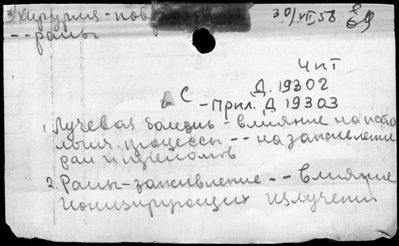 Хирургия - пов
- - раны
30/VI, 58
Чит
Д. 19302
С - Прил. Д 19303
1. Лучевая болезнь - влияние на пато
логич. процессы - - на заживление
ран и переломов
2. Раны - заживление - - влияние
ионизирующих излучений